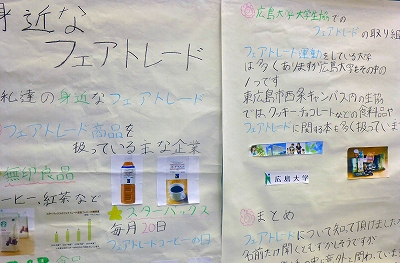 身近な
フェアトレード
私達の身近なフェアトレード
フェアトレード商品を
扱っている主な企業
無印良品
コーヒー、紅茶など
スターバックス
毎月20日
フェアトレードコーヒーの日
食品
広島大学大学生協での
フェアトレードの取り組
フェアトレード運動をしている大学
は多くありますが広島大学もその中の
1つです
東広島市西条キャンパス内の生協
では、クッキー・チョコレートなどの食料品や
フェアトレードに関する本も多く扱っていま
広島大学
まとめ
フェアトレードについて知って頂けましたか